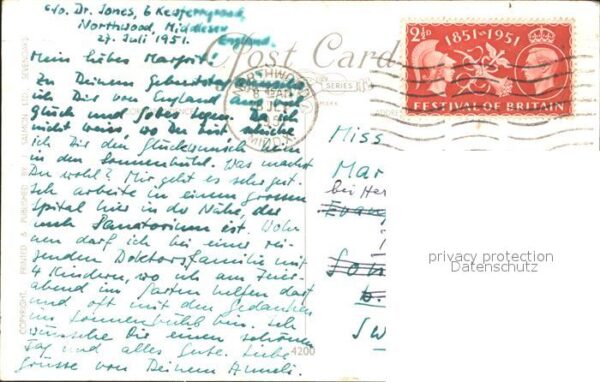 c/o. Dr. Jones, 6
Northwood, Middlesex
27. Juli 1951. England.
Post Card
Mein liebes Margrit!
Zu Deinem Geburtstag wünsche
ich Dir von England aus viel
Glück und Gottes Segen. Da ich
nicht weiss, wo Du bist, schicke
ich Dir den Glückwunsch heim
in den Sonnenbühl. Was machst
Du wohl? Mir geht es sehr gut.
Ich arbeite in einem grossen
Spital hier in der Nähe, das
auch Sanatorium ist. Woh-
nen darf ich bei einer rei-
zenden Doktorsfamilie mit
4 Kindern, wo ich am Feier-
abend im Garten helfen darf
und oft mit den Gedanken
im Sonnenbühl bin. Ich
wünsche Dir einen schönen
Tag und alles Gute. Liebe
Grüsse von Deinem Anneli.
NORTHWOOD
MIDDX
SERIES
2½D
1851-1951
FESTIVAL OF BRITAIN
Miss
Mar
bei Her
Evang
Son
SW
privacy protection
Datenschutz
4200
COPYRIGHT. PRINTED & PUBLISHED BY J. SALMON SEVENOAKS